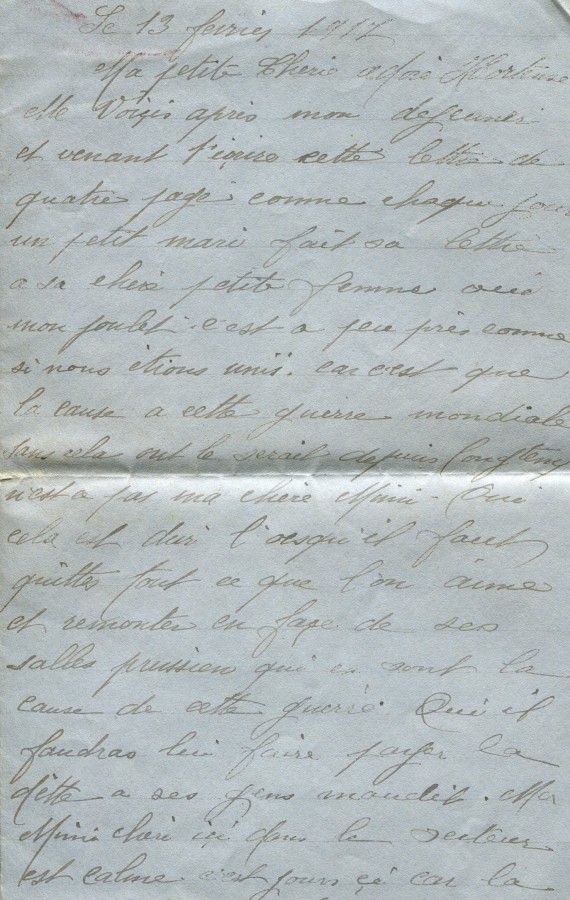 Le 13 février 1917
Ma petite Cherie adoré Hortense
Me Voiçis après mon dejeuner
et venant t'éçrire cette lettre de
quatre page comme chaque jour
un petit mari fait sa lettre
a sa chère petite femme oui
mon poulet c'est a peu près comme
si nous étions unis. car c'est que
la cause a cette guerre mondiale
sans cela ont le serait depuis longtemp
n'est a pas ma chère Mimi. Oui
cela est dur l'orsqu'il faut
quitter tout ce que l'on aime
et remonter en façe de ses
salles prussien qui en sont la
cause de cette guerre. Oui il
faudras lui faire payer la
dette a ses gens maudit. Ma
Mimi cheri içi dans le secteur
est calme c'est jours çi car la